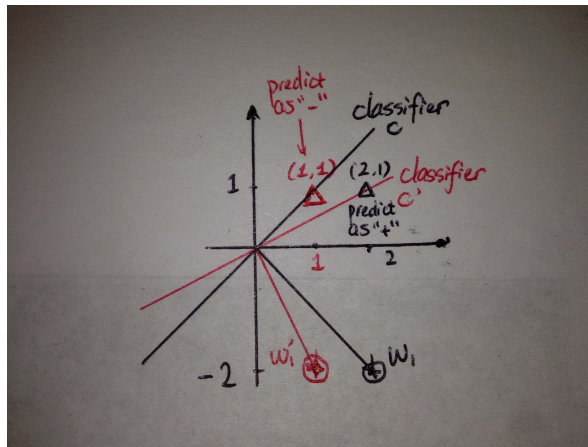 predict
as "-"
classifier
c
(1,1)
(2,1)
1
classifier
c'
predict
as "+"
1
2
w₁'
w₁
-2